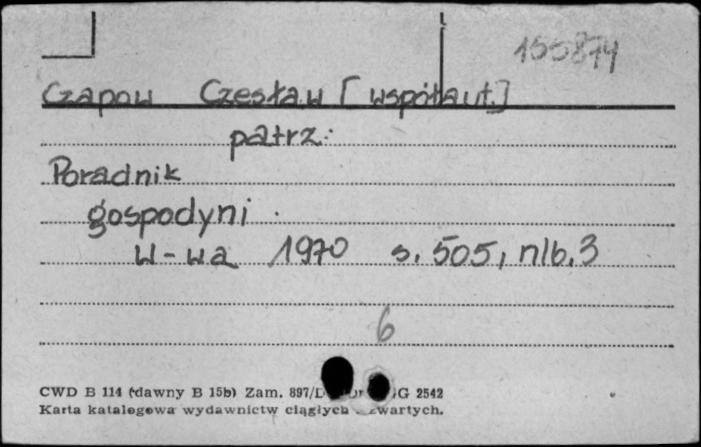 155874
Czapow Czesław [współaut.]
patrz:
Poradnik
gospodyni.
W-wa 1970 s. 505, nlb. 3
6
CWD B 114 (dawny B 15b) Zam. 897/D G 2542
Karta katalogowa wydawnictw ciągłych zwartych.